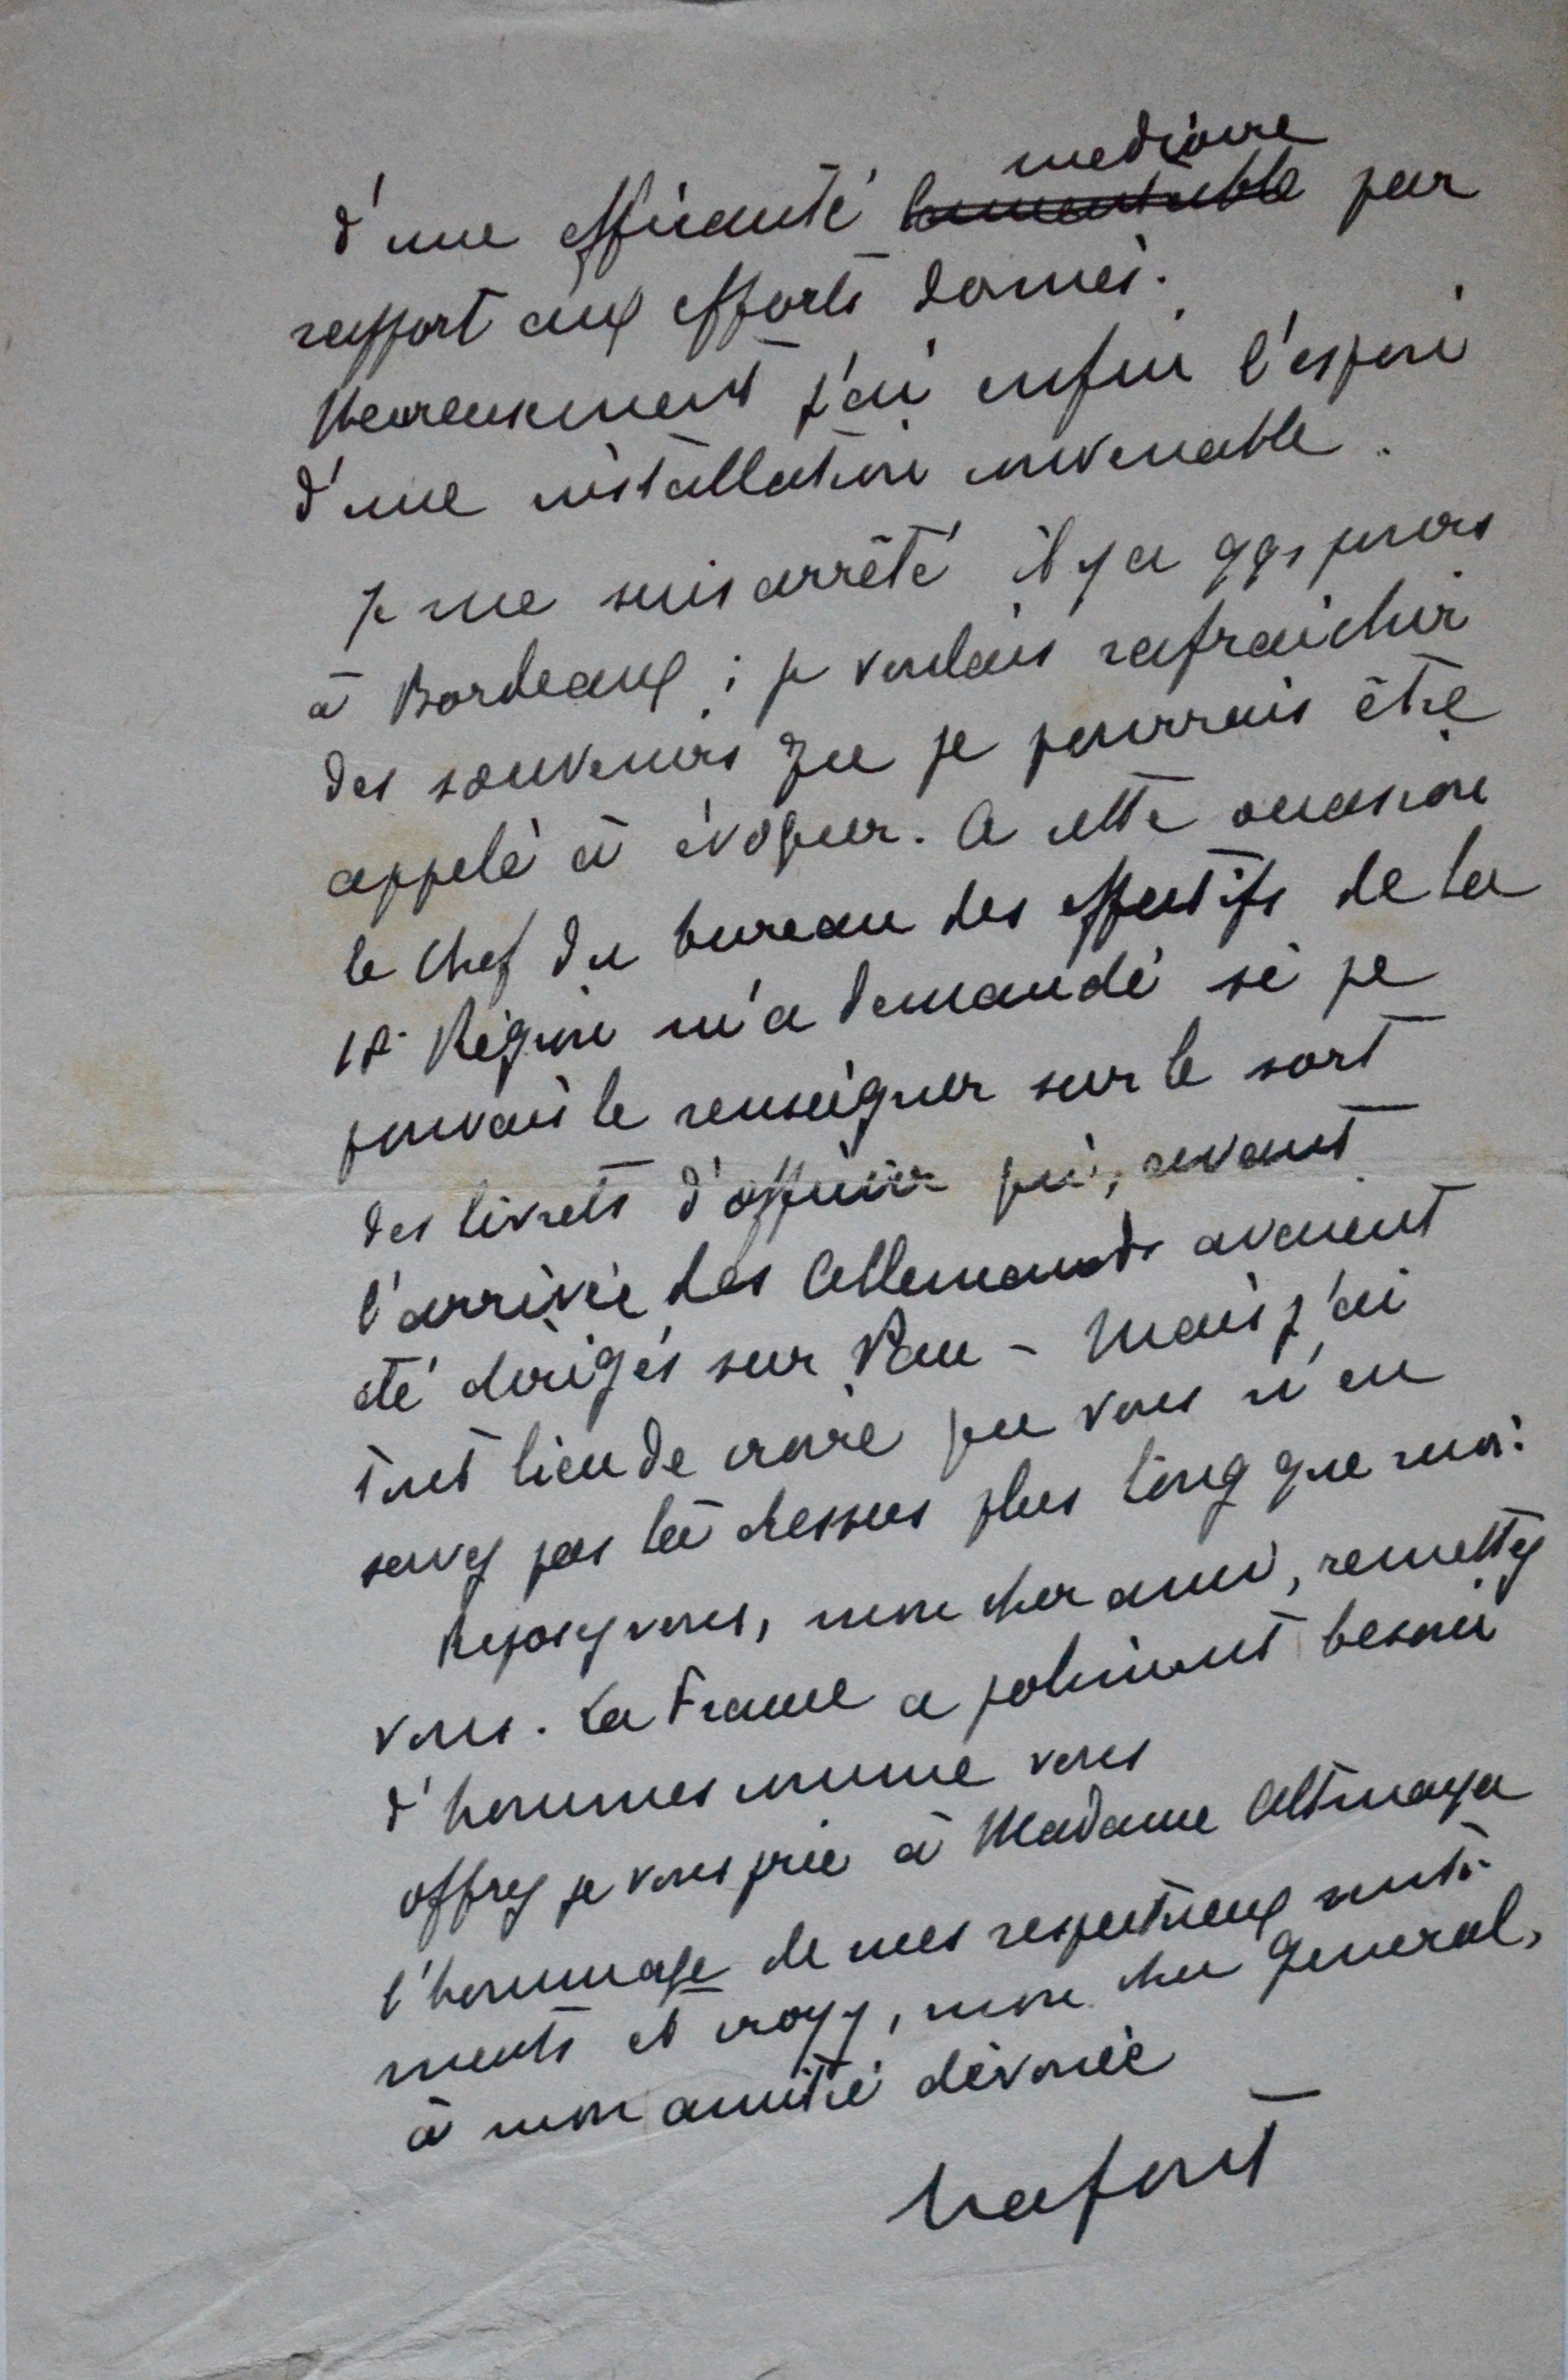 médiocre
d'une efficacité lamentable par
rapport aux efforts donnés.
Heureusement j'ai enfin l'espoir
d'une installation convenable.
Je me suis arrêté il y a qqs jours
à Bordeaux ; je voulais rafraichir
des souvenirs que je pourrais être
appelé à évoquer. A cette occasion
le Chef du bureau des effectifs de la
18e Région m'a demandé si je
pouvais le renseigner sur le sort
des livrets d'officier qui, avant
l'arrivée des Allemands avaient
été dirigés sur Pau - Mais j'ai
tout lieu de croire que vous n'en
savez pas là dessus plus long que moi.
Reposez vous, mon cher ami, remettez
vous. La France a poliment besoin
d'hommes comme vous
offrez je vous prie à Madame Altmayer
l'hommage de mes respectueux senti-
ments et croyez, mon cher Général,
à mon amitié dévouée
Lafont